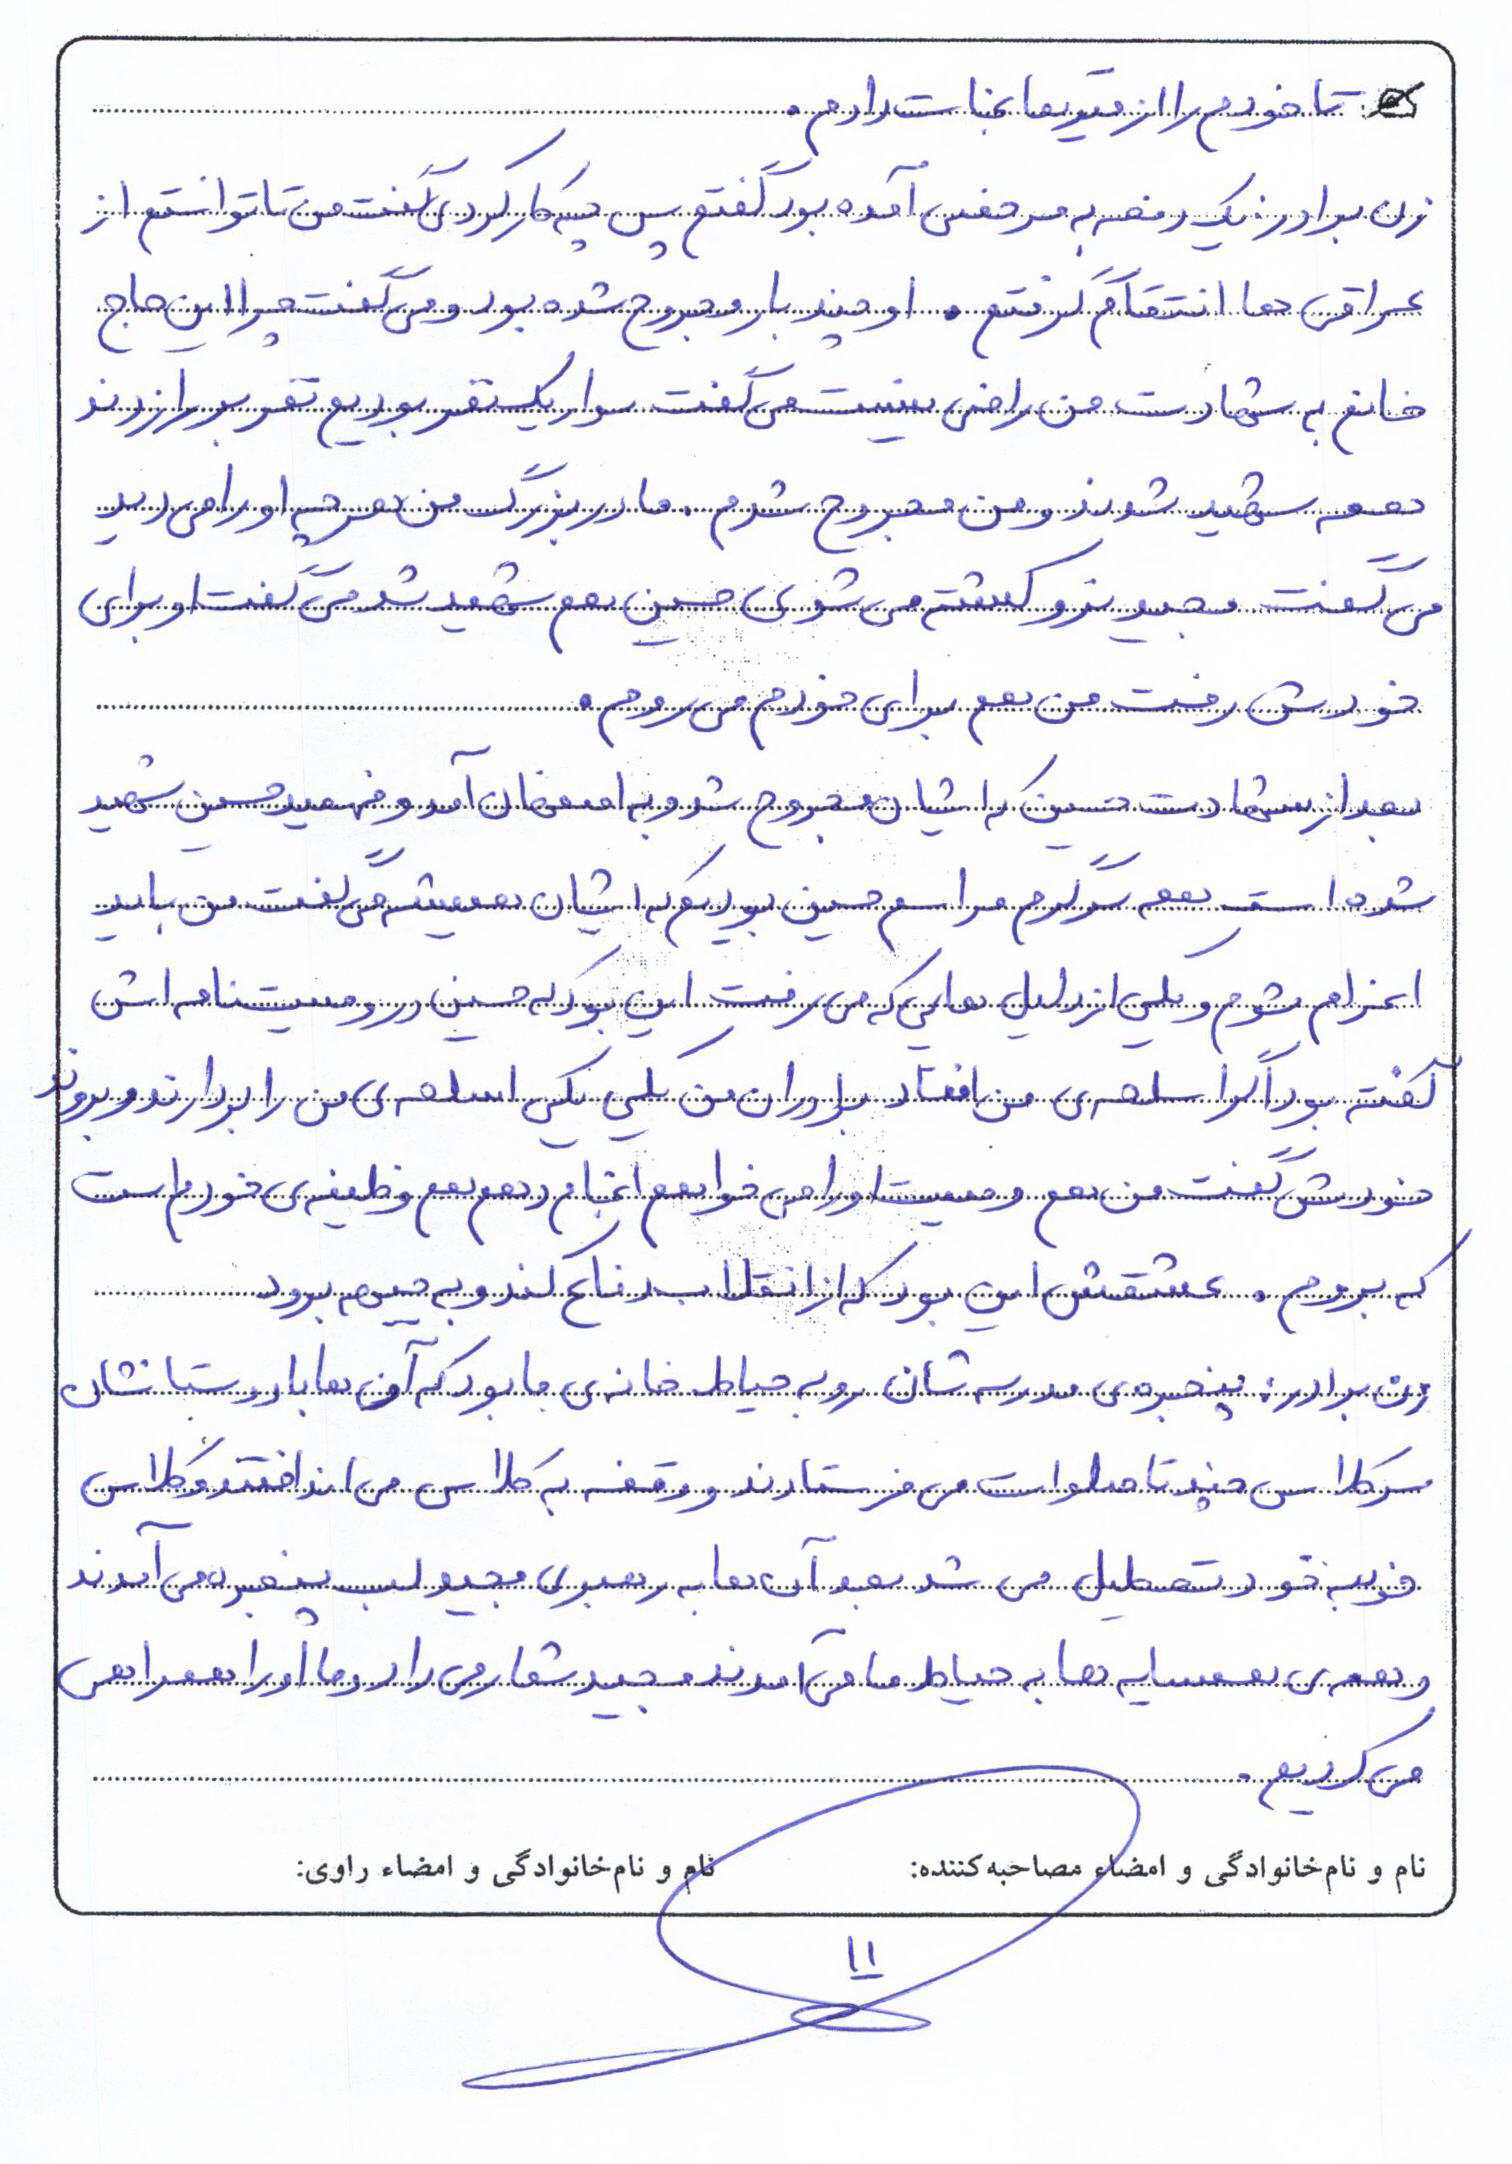 تا خودم را از تیرها نجات دادم.
زن برادر: یک دفعه به مرخصی آمده بود گفتم پس چه کار کردی گفت من تا توانستم از
عراقی ها انتقام گرفتم. او چند بار مجروح شده بود و می گفت چرا این حاج
خانم به شهادت من راضی نیست می گفت سوار یک نفر بودیم نفر بر را زدند
همه شهید شدند و من مجروح شدم. مادربزرگ من هر چه او را می دید
می گفت مجید نرو کشته می شوی حسین هم شهید شد می گفت او برای
خودش رفت من هم برای خودم می روم.
بعد از شهادت حسین که ایشان مجروح شد و به اصفهان آمد و فهمید حسین شهید
شده است همه سرگرم مراسم حسین بودیم که ایشان همیشه می گفت من باید
اعزام شوم و یکی از دلیل هایی که می رفت این بود که حسین در وصیت نامه اش
گفته بود اگر اسلحه ی من افتاد برادران من یکی یکی اسلحه ی من را بردارند و بروند
خودش گفت من هم وصیت او را می خواهم انجام دهم هم وظیفه ی خودم است
که بروم. عشقش این بود که از انقلاب دفاع کند و به جبهه برود
زن برادر: پنجره ی مدرسه شان رو به حیاط خانه ی ما بود که آن ها با دوستانشان
سر کلاس چند تا صلوات می فرستادند و وقفه به کلاس می انداختند و کلاس
خود به خود تعطیل می شد بعد آن ها به رهبری مجید لب پنجره می آمدند
و همه ی همسایه ها به حیاط ما می آمدند مجید شعار می داد و ما او را همراهی
می کردیم.
نام و نام‌خانوادگی و امضاء مصاحبه‌کننده: نام و نام‌خانوادگی و امضاء راوی:
۱۱